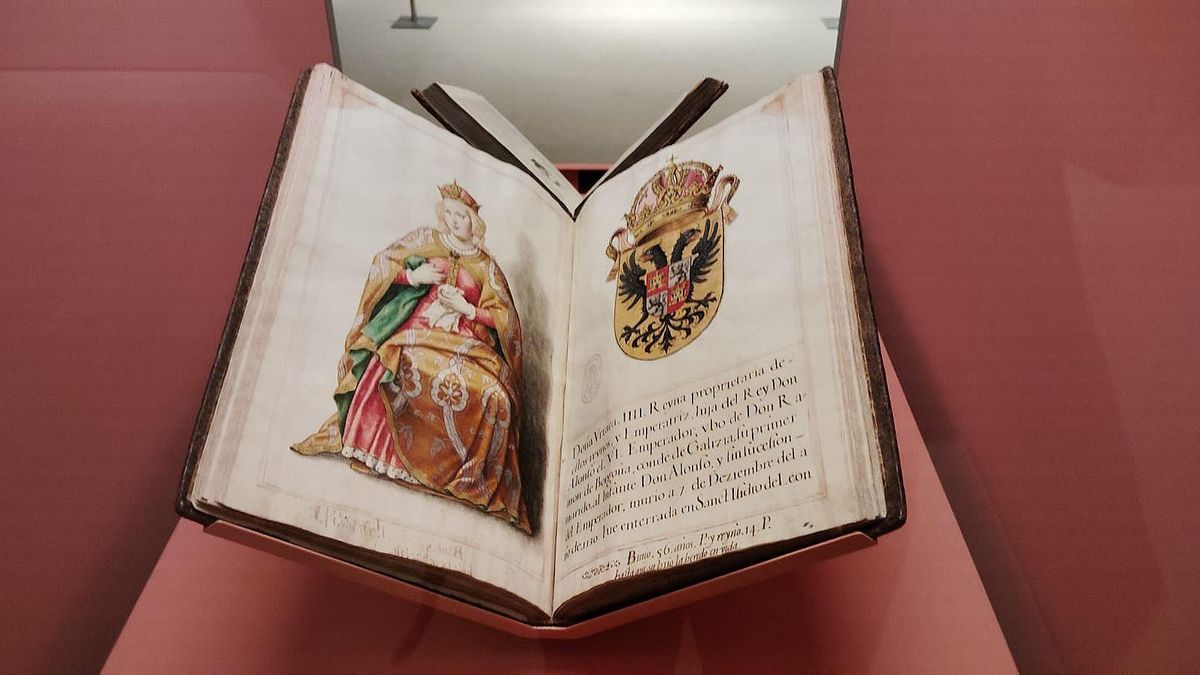 Doña Vrraca. IIII. Reyna proprietaria de-
stos reynos, y Emperatriz, hija del Rey Don
Alonso el VI. Emperador, vbo de Don Ra-
mon de Borgoña, conde de Galizia, su primer
marido, al Infante Don Alonso, y sin sucesion
del Emperador, murio a 7 de Deziembre del a
no de fue enterrada en Sanct Isidro de Leon
Biuio. 56. años. P. y reyno. 14. P.
hasta que su hijo la heredo en vida